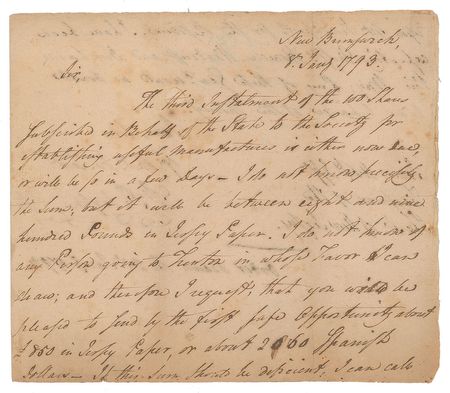 New Brunswick,
8. Jany 1793.
Sir,
The third Instalment of the 100 Shares
subscribed in Behalf of the State to the Society for
establishing useful manufactures is either now due,
or will be so in a few Days – I do not know precisely
the Sum, but it will be between eight and nine
hundred Pounds in Jersey Paper. I do not know of
any Person going to Trenton in whose Favor I can
draw; and therefore I request, that you would be
pleased to send by the first safe Opportunity about
£850 in Jersey Paper, or about 2000 Spanish
Dollars – If this Sum should be deficient, I can call